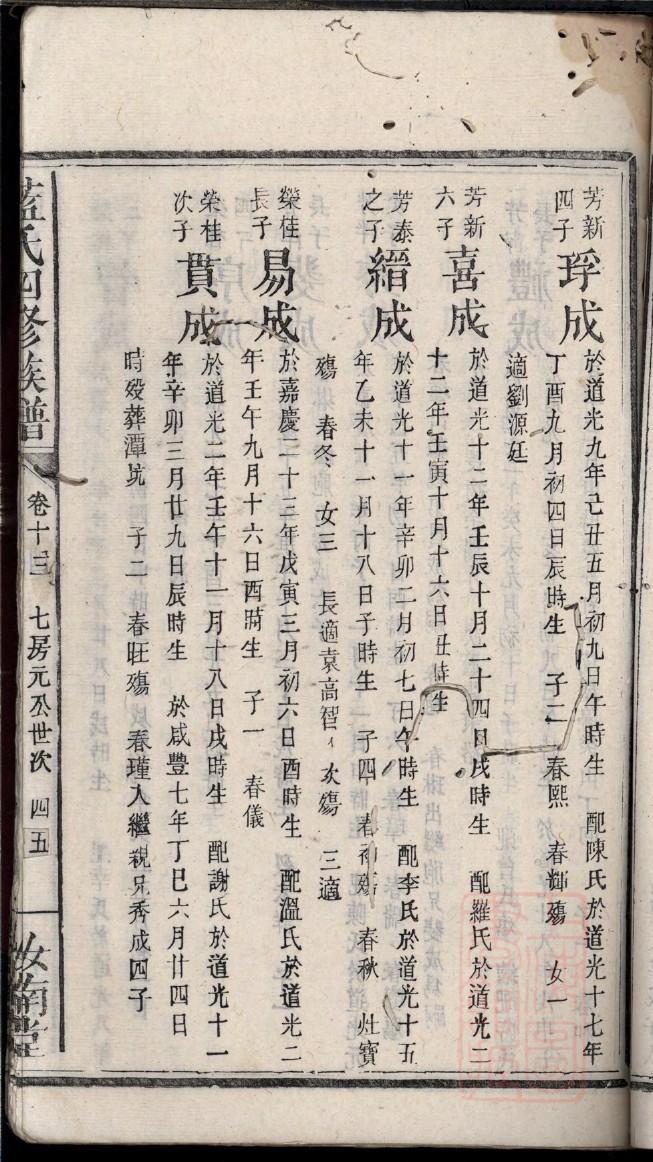 芳新
四子
琈成
於道光九年己丑五月初九日午時生 配陳氏於道光十七年
丁酉九月初四日辰時生 子二 春熙 春輝殤 女一
適劉源廷
芳新
六子
喜成
於道光十二年壬辰十月二十四日戌時生 配羅氏於道光二
十二年壬寅十月十六日丑時生
芳泰
之子
縉成
於道光十一年辛卯二月初七日午時生 配李氏於道光十五
年乙未十一月十八日子時生 子四 春 殤 春秋 灶寶
殤 春冬 女三 長適袁高智 次殤 三適
榮佳
長子
易成
於嘉慶二十三年戊寅三月初六日酉時生 配溫氏於道光二
年壬午九月十六日酉時生 子一 春儀
榮桂
次子
貫成
於道光二年壬午十一月十八日戌時生 配謝氏於道光十一
年辛卯三月廿九日辰時生 於咸豐七年丁巳六月廿四日
時歿葬潭坑 子二 春旺殤 春瑾入繼親兄秀成四子
藍氏四修族譜
卷十三 七房元公世次 四五
汝南堂